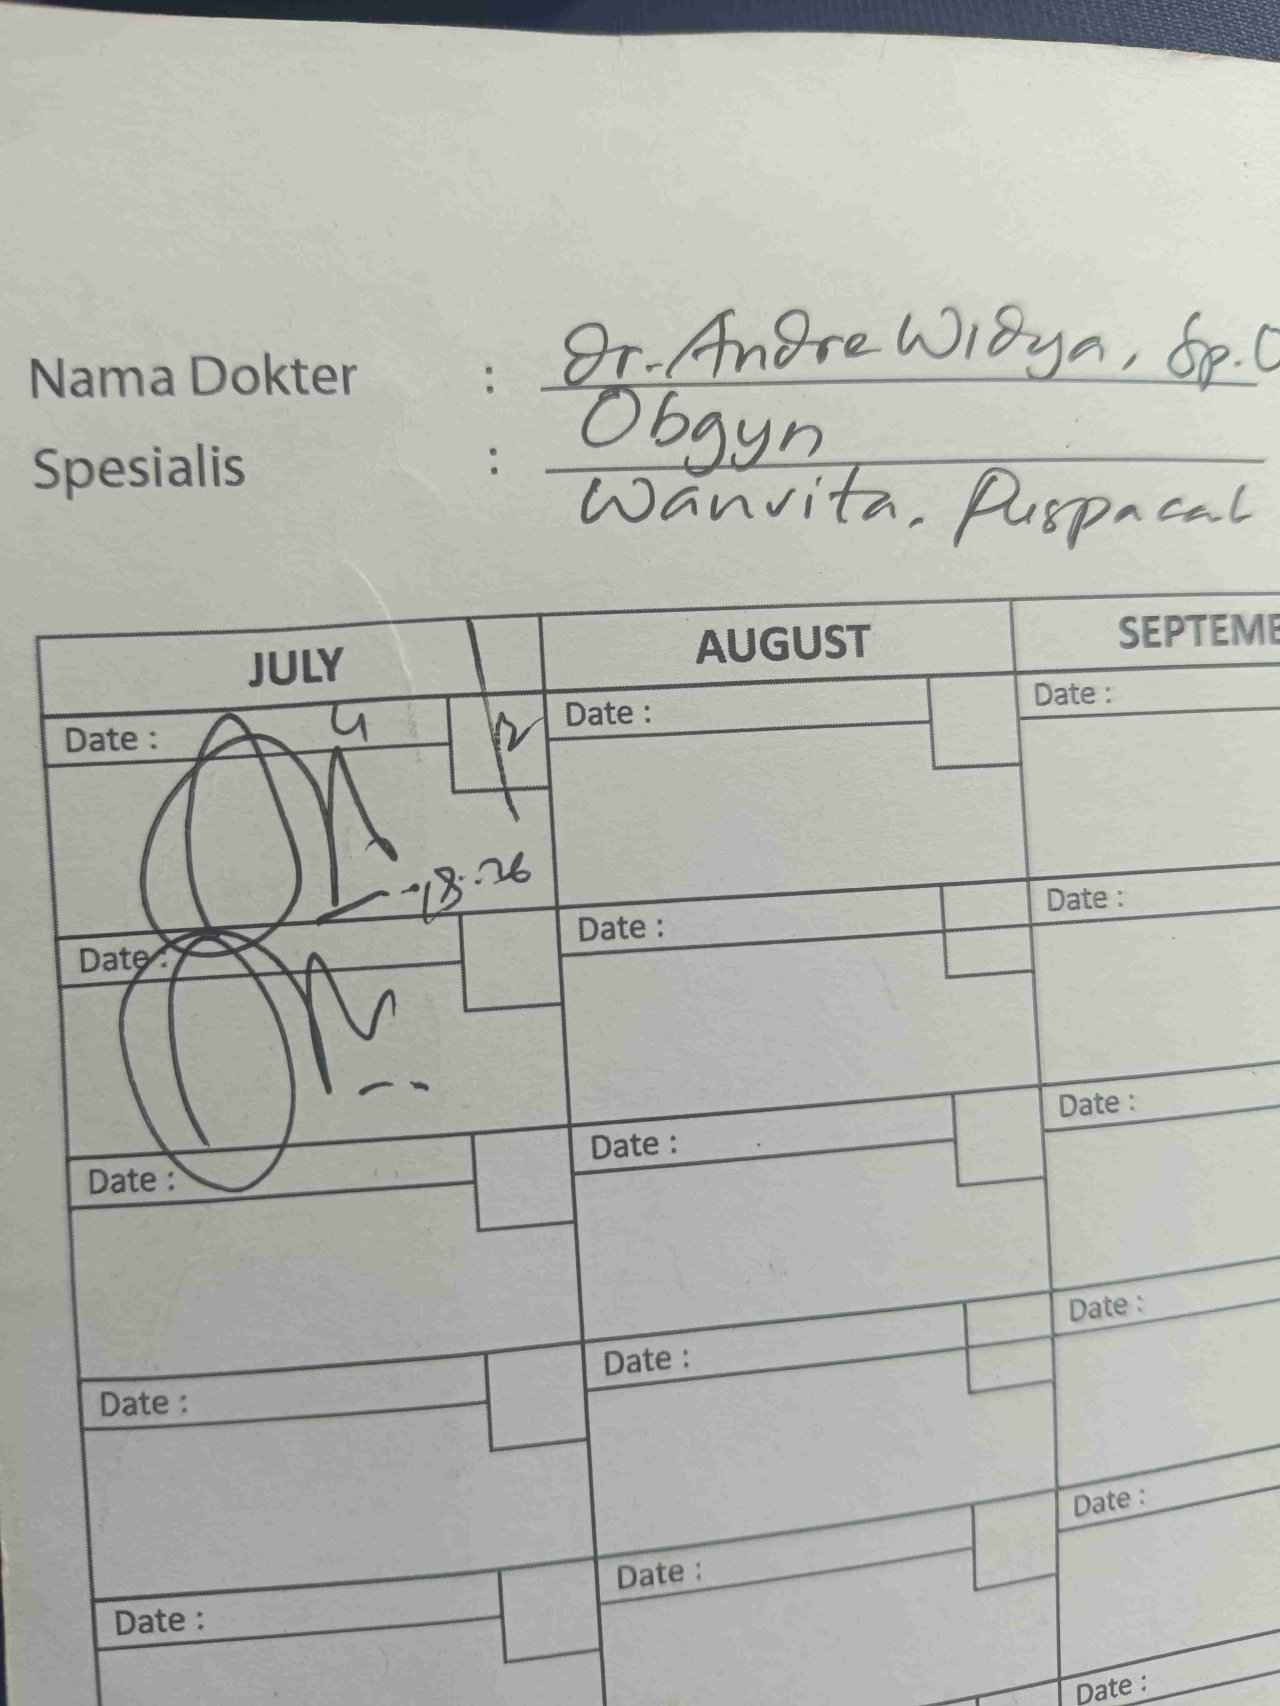 Nama Dokter : Dr. Andre Widya, Sp.O
Spesialis : Obgyn
Wanvita, Puspacal
JULY AUGUST SEPTEME
Date : Date : Date :
18:26
Date : Date : Date :
Date : Date : Date :
Date : Date : Date :
Date : Date : Date :
Date :